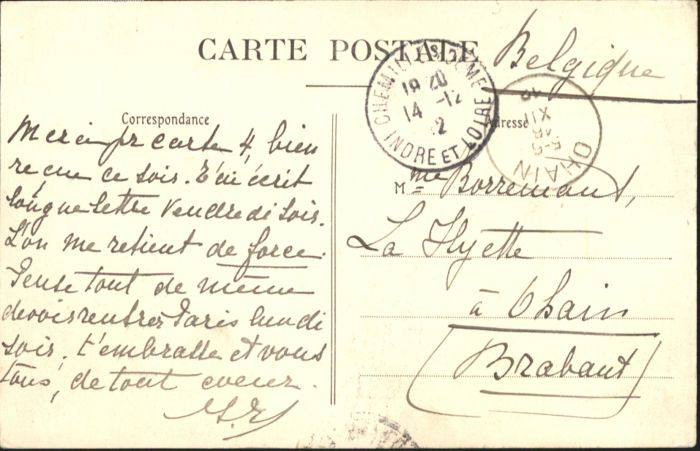 CARTE POSTALE
Belgique
Correspondance
Adresse
INDRE ET LOIRE
19 20
14 -12
12
OHAIN
XII
Merci pr carte 4, bien
reçue ce soir. T'ai écrit
longue lettre Vendredi soir.
L'on me retient de force.
Pense tout de même
devoir rentrer Paris lundi
soir, t'embrasse et vous
tous, de tout coeur.
M me Borremant,
La Hyette
à Ohain
(Brabant)